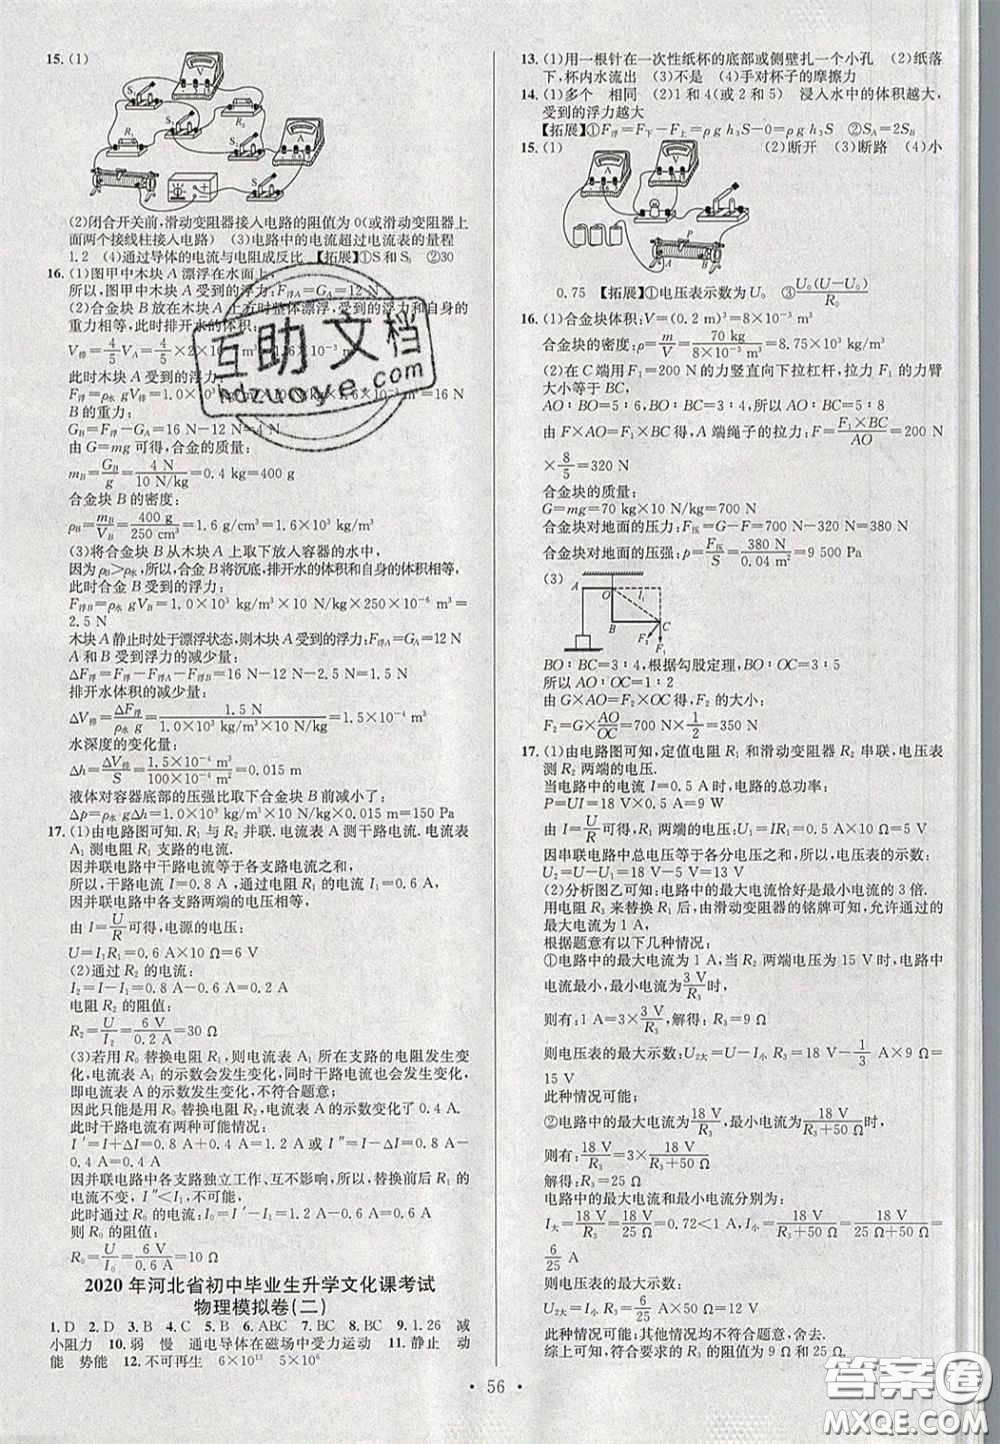 15. (1)
V
S₂
S₁
R₁
R₂
A
S
(2)闭合开关前,滑动变阻器接入电路的阻值为 0(或滑动变阻器上
面两个接线柱接入电路) (3)电路中的电流超过电流表的量程
1.2 (4)通过导体的电流与电阻成反比 【拓展】①S和S₁ ②30
16. (1)图甲中木块 A 漂浮在水面上:
所以,木块 A 受到的浮力:F浮A=GA=12 N
(2)合金块 B 放在木块 A 上方时整体漂浮,受到的浮力和自身的
重力相等,此时排开水的体积:
此时木块 A 受到的浮力:
B 的重力:
GB=F浮−GA=16 N−12 N=4 N
由 G=mg 可得,合金的质量:
mB=GB/g=4 N/10 N/kg=0.4 kg=400 g
合金块 B 的密度:
ρB=mB/VB=400 g/250 cm³=1.6 g/cm³=1.6×10³ kg/m³
(3)将合金块 B 从木块 A 上取下放入容器的水中,
因为 ρB>ρ水,所以,合金块 B 将沉底,排开水的体积和自身的体积相等,
此时合金块 B 受到的浮力:
F浮B=ρ水 gVB=1.0×10³ kg/m³×10 N/kg×250×10⁻⁶ m³=
2.5 N
木块 A 静止时处于漂浮状态,则木块 A 受到的浮力:F浮A=GA=12 N
A 和 B 受到的浮力的减少量:
ΔF浮=F浮−F浮A−F浮B=16 N−12 N−2.5 N=1.5 N
排开水体积的减少量:
ΔV排=ΔF浮/ρ水 g=1.5 N/1.0×10³ kg/m³×10 N/kg=1.5×10⁻⁴ m³
水深度的变化量:
Δh=ΔV排/S=1.5×10⁻⁴ m³/100×10⁻⁴ m²=0.015 m
液体对容器底部的压强比取下合金块 B 前减小了:
Δp=ρ水 gΔh=1.0×10³ kg/m³×10 N/kg×0.015 m=150 Pa
17. (1)由电路图可知. R₁ 与 R₂ 并联. 电流表 A 测干路电流. 电流表
A₁ 测电阻 R₁ 支路的电流.
因并联电路中干路电流等于各支路电流之和,
所以,干路电流 I=0.8 A,通过电阻 R₁ 的电流 I₁=0.6 A
因并联电路中各支路两端的电压相等,
由 I=U/R 可得,电源的电压:
U=I₁R₁=0.6 A×10 Ω=6 V
(2)通过 R₂ 的电流:
I₂=I−I₁=0.8 A−0.6 A=0.2 A
电阻 R₂ 的阻值:
R₂=U/I₂=6 V/0.2 A=30 Ω
(3)若用 R₀ 替换电阻 R₁,则电流表 A₁ 所在支路的电阻发生变
化,电流表 A₁ 的示数会发生变化,同时干路电流也会发生变
化,即电流表 A 的示数发生变化,不符合题意;
因此只能是用 R₀ 替换电阻 R₂,电流表 A 的示数变化了 0.4 A.
此时干路电流有两种可能情况:
I′=I+ΔI=0.8 A+0.4 A=1.2 A 或 I″=I−ΔI=0.8 A−
0.4 A=0.4 A
因并联电路中各支路独立工作、互不影响,所以,替换前后 R₁ 的
电流不变, I″<I₁,不可能,
此时通过 R₀ 的电流:I₀=I′−I₁=1.2 A−0.6 A=0.6 A
则 R₀ 的阻值:
R₀=U/I₀=6 V/0.6 A=10 Ω
2020 年河北省初中毕业生升学文化课考试
物理模拟卷(二)
1. D 2. D 3. B 4. C 5. B 6. ABC 7. BC 8. BC 9. 1.26 减
小阻力 10. 弱 慢 通电导体在磁场中受力运动 11. 静止 动
能 势能 12. 不可再生 6×10¹³ 5×10⁶
13. (1)用一根针在一次性纸杯的底部或侧壁扎一个小孔 (2)纸落
下,杯内水流出 (3)不是 (4)手对杯子的摩擦力
14. (1)多个 相同 (2)1 和 4(或 2 和 5) 浸入水中的体积越大,
受到的浮力越大
【拓展】①F浮=F下−F上=ρ g h₃S−0=ρ g h₃S ②SA=2SB
15. (1) (2)断开 (3)断路 (4)小
P
0.75 【拓展】①电压表示数为 U₀ ③U₀(U−U₀)/R₀
16. (1)合金块体积:V=(0.2 m)³=8×10⁻³ m³
合金块的密度:ρ=m/V=70 kg/8×10⁻³ m³=8.75×10³ kg/m³
(2)在 C 端用 F₁=200 N 的力竖直向下拉杠杆,拉力 F₁ 的力臂
大小等于 BC,
AO∶BO=5∶6,BO∶BC=3∶4,所以 AO∶BC=5∶8
由 F×AO=F₁×BC 得,A 端绳子的拉力:F=F₁×BC/AO=200 N
×8/5=320 N
合金块的质量:
G=mg=70 kg×10 N/kg=700 N
合金块对地面的压力:F压=G−F=700 N−320 N=380 N
合金块对地面的压强:p=F压/S=380 N/0.04 m²=9 500 Pa
(3)
A O l₁ B C F₂ F₁
BO∶BC=3∶4,根据勾股定理,BO∶OC=3∶5
所以 AO∶OC=1∶2
由 G×AO=F₂×OC 得,F₂ 的大小:
F₂=G×AO/OC=700 N×1/2=350 N
17. (1)由电路图可知,定值电阻 R₁ 和滑动变阻器 R₂ 串联,电压表
测 R₂ 两端的电压.
当电路中的电流 I=0.5 A时,电路的总功率:
P=UI=18 V×0.5 A=9 W
由 I=U/R 可得,R₁ 两端的电压:U₁=IR₁=0.5 A×10 Ω=5 V
因串联电路中总电压等于各分电压之和,所以,电压表的示数:
U₂=U−U₁=18 V−5 V=13 V
(2)分析图乙可知:电路中的最大电流恰好是最小电流的 3 倍.
用电阻 R₃ 来替换 R₁ 后,由滑动变阻器的铭牌可知,允许通过的
最大电流为 1 A,
根据题意有以下几种情况:
①电路中的最大电流为 1 A,当 R₂ 两端电压为 15 V 时,电路中
电流最小,最小电流为3 V/R₃时,
则有:1 A=3×3 V/R₃,解得:R₃=9 Ω
则电压表的最大示数:U₂大=U−I小 R₃=18 V−1/3 A×9 Ω=
15 V
此种情况可能;
②电路中的最大电流为18 V/R₃,最小电流为18 V/R₃+50 Ω时,
则有:18 V/R₃=3×18 V/R₃+50 Ω
解得:R₃=25 Ω
电路中的最大电流和最小电流分别为:
I大=18 V/R₃=18 V/25 Ω=0.72<1 A,I小=18 V/R₃+50 Ω=18 V/25 Ω+50 Ω=
6/25 A
则电压表的最大示数:
综上可知,符合要求的 R₃ 的阻值为 9 Ω 和 25 Ω.
· 56 ·
互助文档
hdzuoye.com
答案圈
MXQE.COM